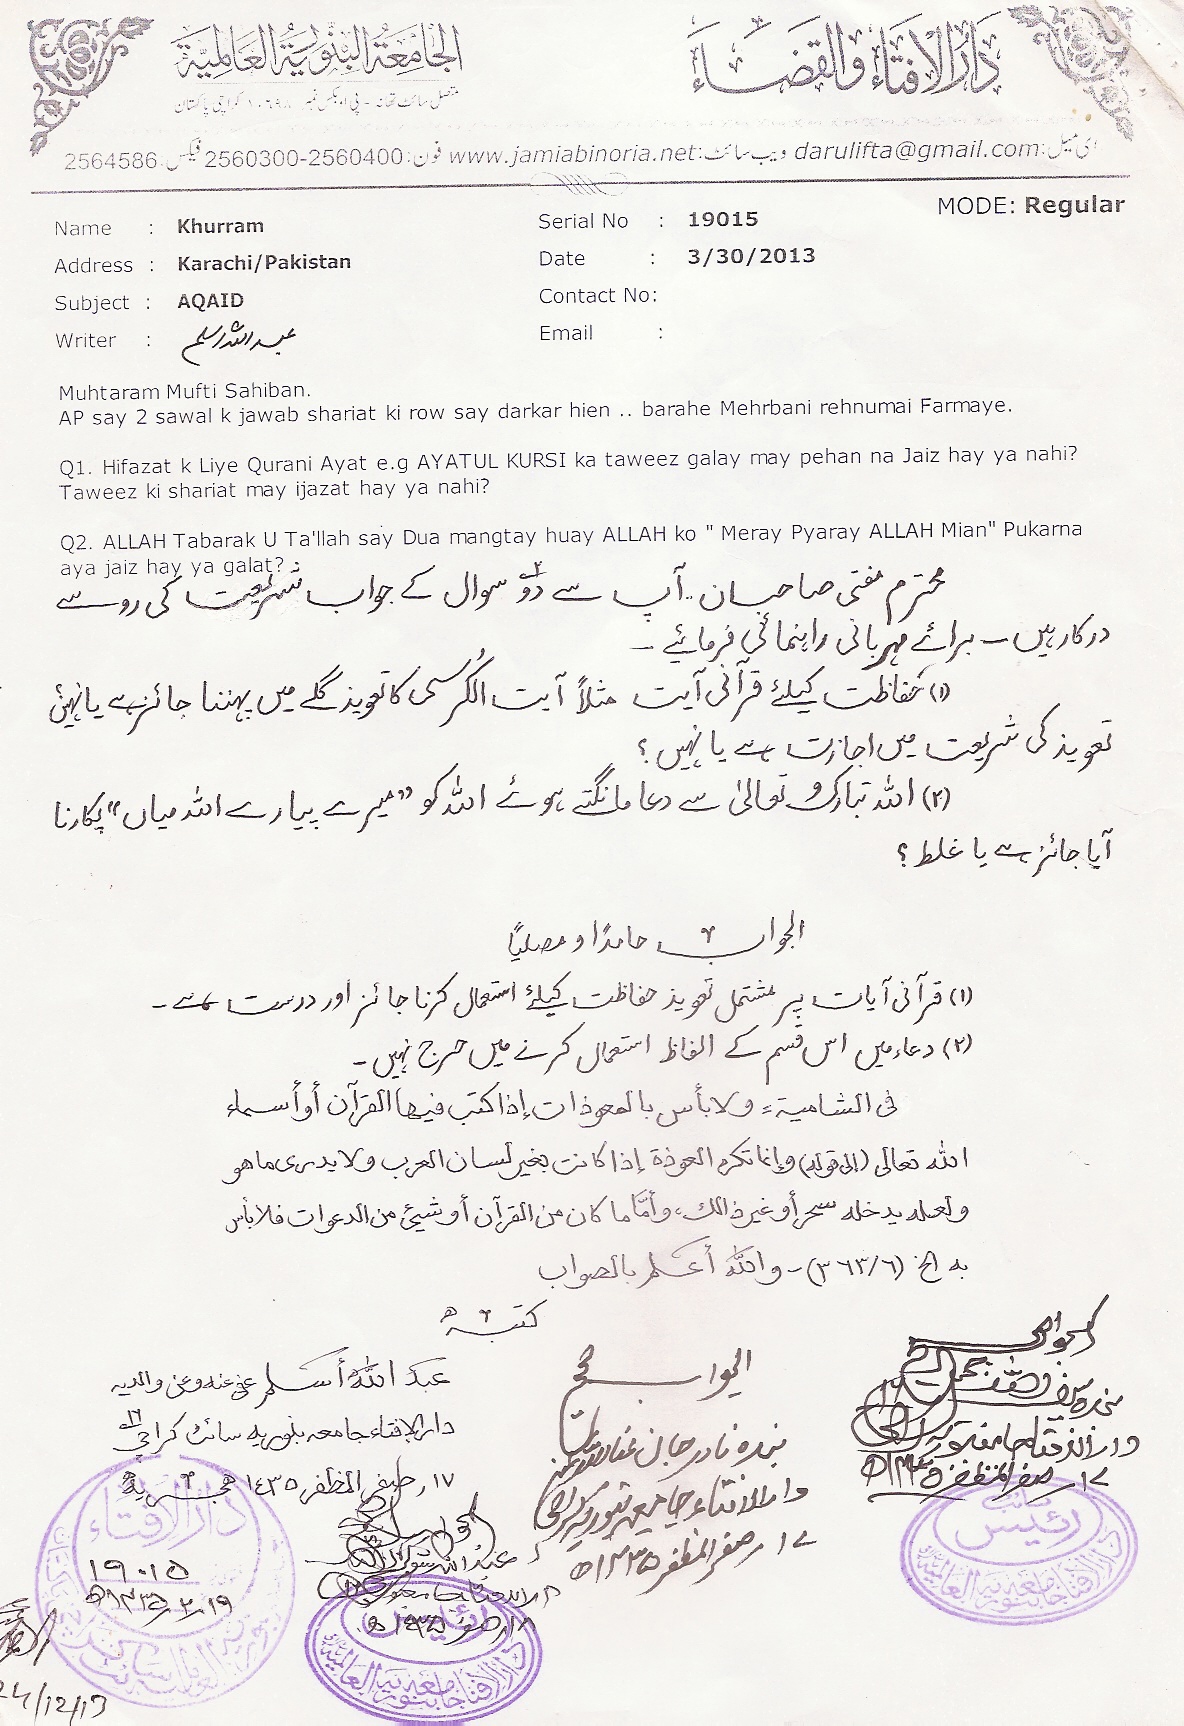 دار الافتاء والقضاء
الجامعة البنورية العالمية
متصل سائٹ تھانہ - پی او بکس نمبر ۱۰۶۹۸ کراچی پاکستان
ای میل: darulifta@gmail.com ویب سائٹ: www.jamiabinoria.net فون: 2560300-2560400 فیکس: 2564586
MODE: Regular
Name : Khurram
Serial No : 19015
Address : Karachi/Pakistan
Date : 3/30/2013
Subject : AQAID
Contact No:
Writer : عبداللہ اسلم
Email :
Muhtaram Mufti Sahiban.
AP say 2 sawal k jawab shariat ki row say darkar hien .. barahe Mehrbani rehnumai Farmaye.
Q1. Hifazat k Liye Qurani Ayat e.g AYATUL KURSI ka taweez galay may pehan na Jaiz hay ya nahi?
Taweez ki shariat may ijazat hay ya nahi?
Q2. ALLAH Tabarak U Ta'llah say Dua mangtay huay ALLAH ko " Meray Pyaray ALLAH Mian" Pukarna
aya jaiz hay ya galat?
محترم مفتی صاحبان .. آپ سے دو۲ سوال کے جواب شریعت کی رو سے
درکار ہیں ۔ برائے مہربانی راہنمائی فرمائیے ۔
(۱) حفاظت کیلئے قرآنی آیت مثلاً آیت الکُرسی کا تعویذ گلے میں پہننا جائز ہے یا نہیں؟
تعویذ کی شریعت میں اجازت ہے یا نہیں ؟
(۲) اللہ تبارک و تعالیٰ سے دعا مانگتے ہوئے اللہ کو "میرے پیارے اللہ میاں" پکارنا
آیا جائز ہے یا غلط ؟
الجواب حامدًا و مصلیًا
(۱) قرآنی آیات پر مشتمل تعویذ حفاظت کیلئے استعمال کرنا جائز اور درست ہے ۔
(۲) دعاء میں اس قسم کے الفاظ استعمال کرنے میں حرج نہیں ۔
فی الشامیة : ولا بأس بالمعوذات إذا کتب فیها القرآن أو أسماء
اللہ تعالی (إلی قوله) وإنما تکرہ العوذة إذا کانت بغیر لسان العرب ولا یدری ما هو
ولعله یدخله سحر أو غیر ذالك، وأمّا ما کان من القرآن أو شیئ من الدعوات فلا بأس
به الخ (۳۶۳/۶) ۔ واللہ أعلم بالصواب
کتبہ
عبد اللہ أسلم عفی عنه وعن والدیه
دار الإفتاء جامعہ بنوریہ سائٹ کراچی ۱۶
۱۷ صفر المظفر ۱۴۳۵ ھجریہ
الجواب صحیح
بندہ نادر جان عفا اللہ عنہ
دار الافتاء جامعہ بنوریہ کراچی
۱۷ صفر المظفر ۱۴۳۵ھ
الجواب صحیح
دار الافتاء جامعہ بنوریہ
۱۷ صفر المظفر ۱۴۳۵ھ
نائب
رئیس
دار الافتاء جامعة بنورية العالمية
رئیس
دار الافتاء جامعة بنورية العالمية
دار الافتاء
۱۹۰۱۵
۱۹/۲/۱۴۳۵ھ
24/12/13